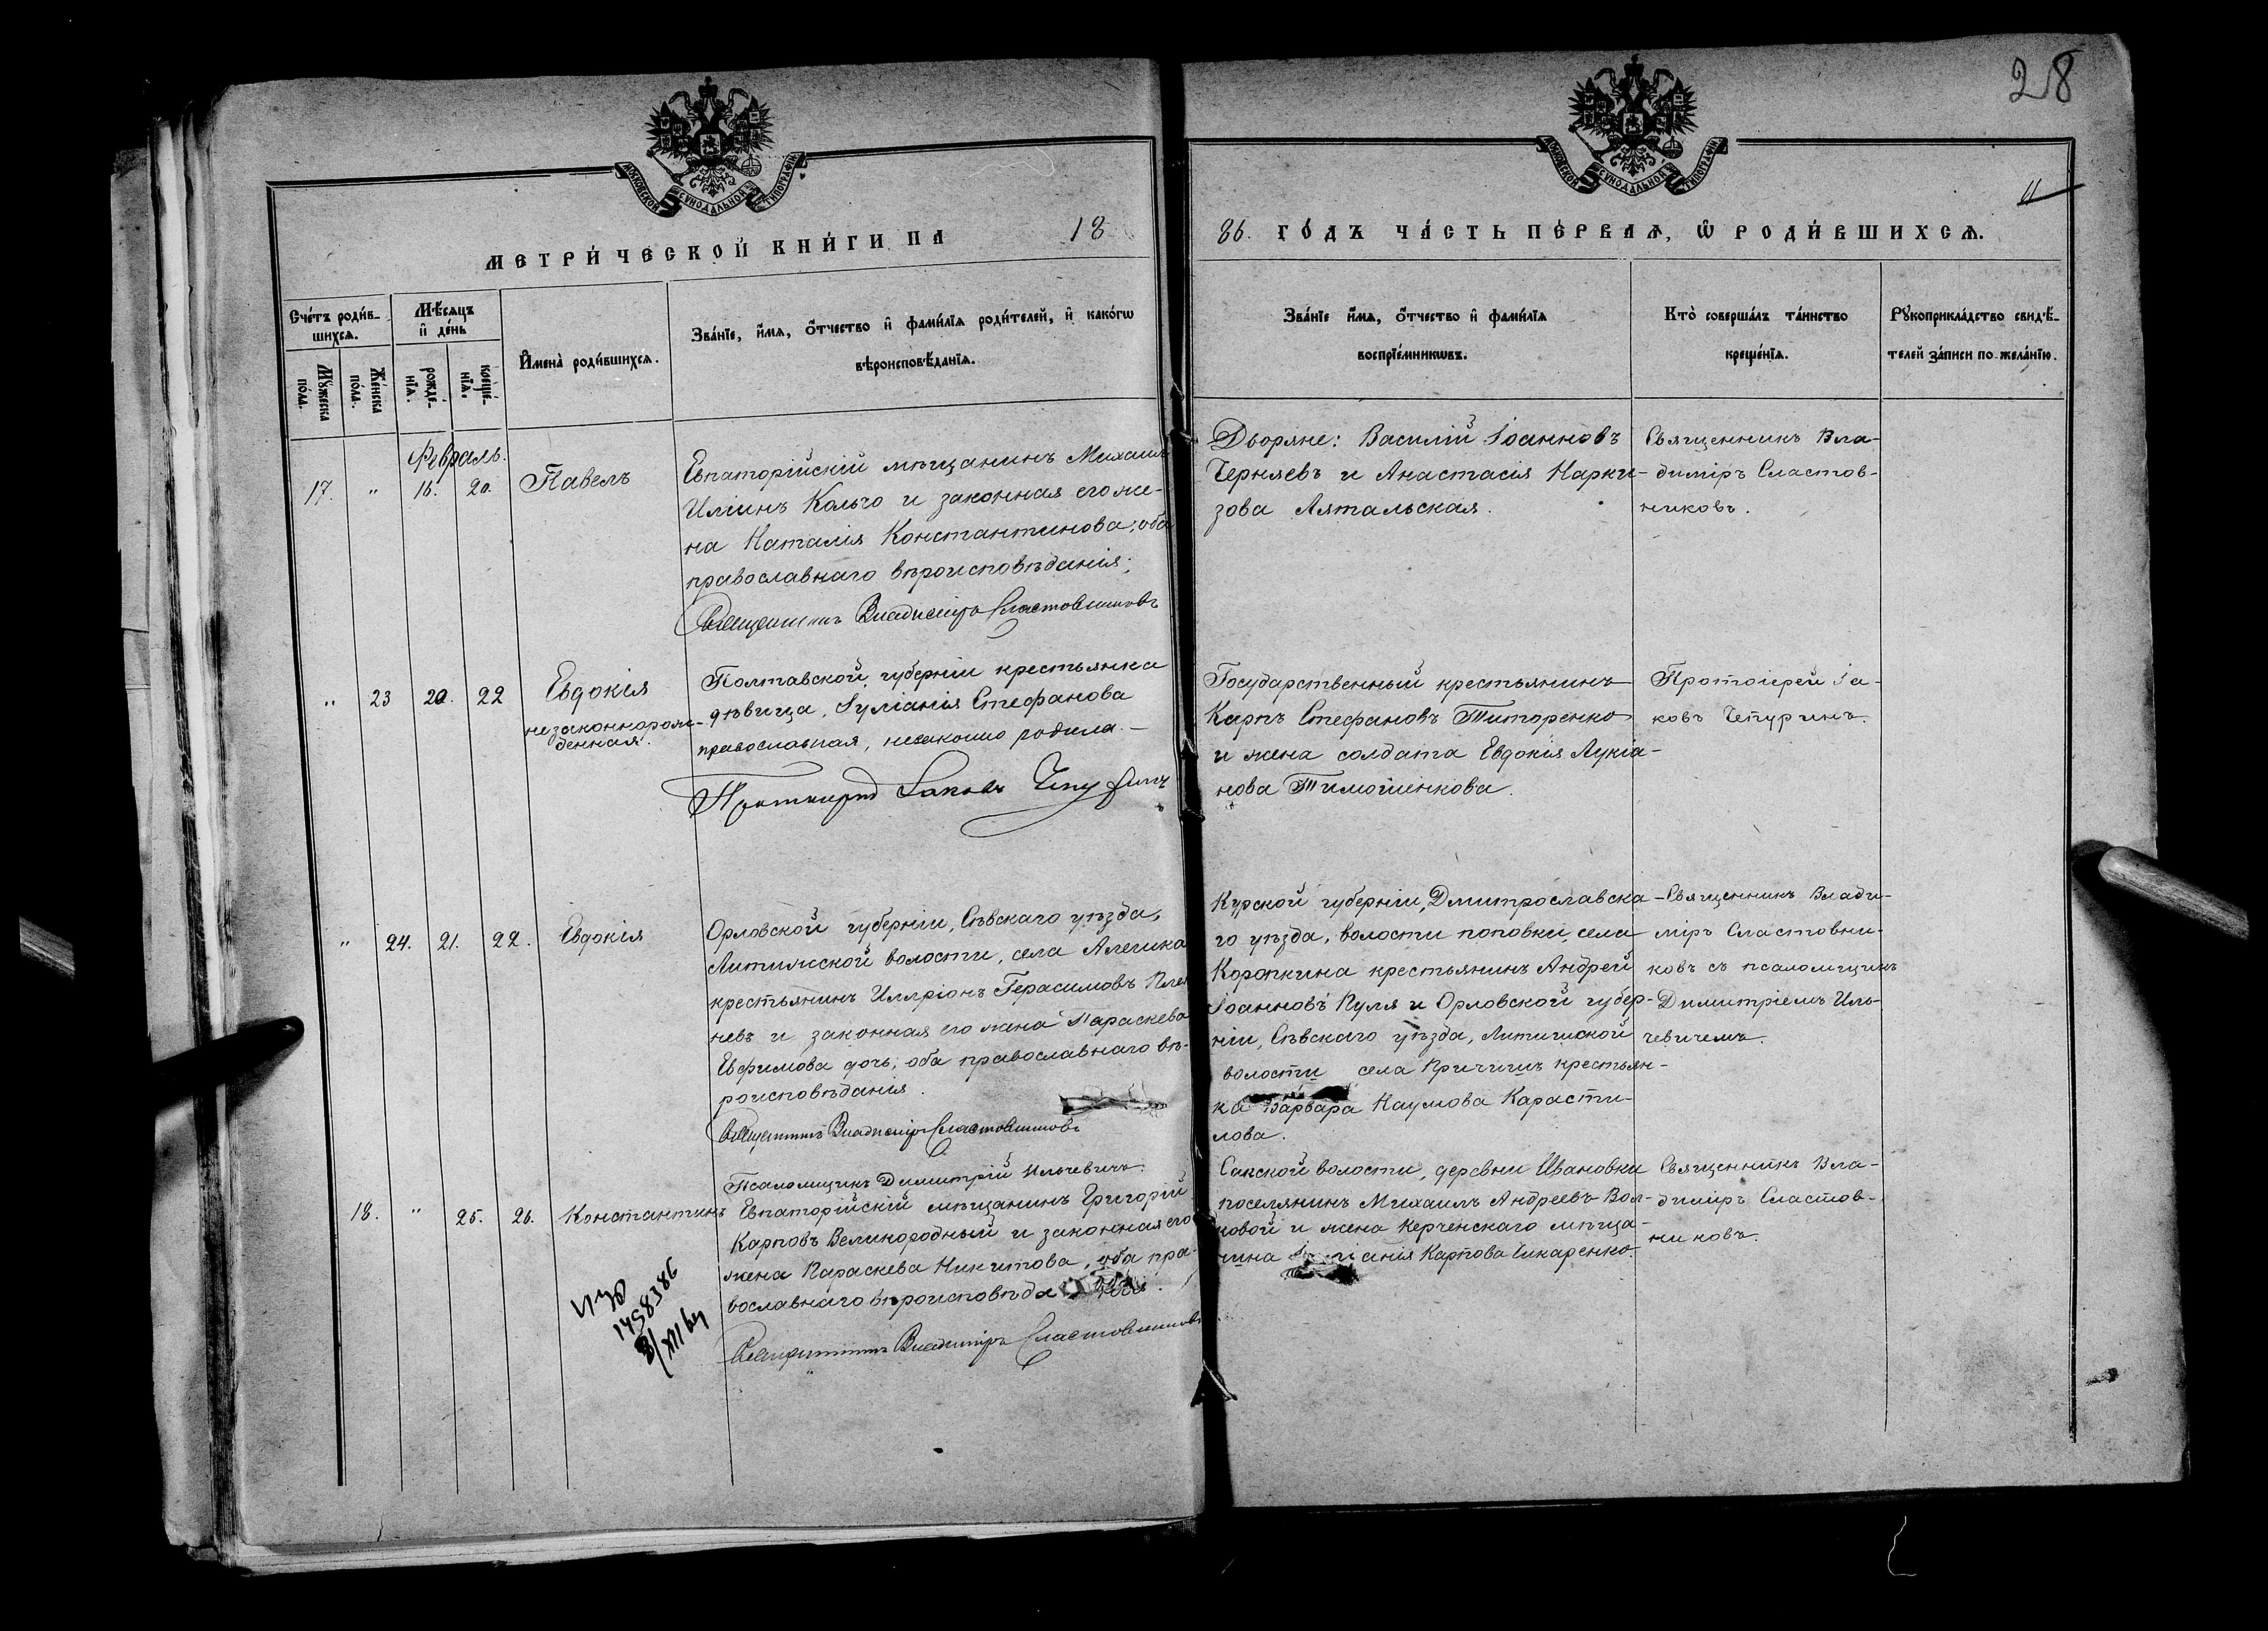 28
11
МОСКОВСКОЙ СѴНОДАЛЬНОЙ ТИПОГРАФІИ
МОСКОВСКОЙ СѴНОДАЛЬНОЙ ТИПОГРАФІИ
МЕТРИ́ЧЕСКОЙ КНИ́ГИ НА 18
86. ГО́ДЪ ЧА́СТЬ ПЕ́РВАѦ, Ѡ РОДИ́ВШИХСѦ.
Сче́тъ роди́в-
шихсѧ.
Мꙋ́жеска
по́ла.
Же́нска
по́ла.
Мѣ́сѧцъ
и҆ де́нь
рожде́-
нїѧ.
креще́-
нїѧ.
И҆мена̀ роди́вшихсѧ.
Зва́нїе, и҆́мѧ, ѻ҆́тчество и҆ фами́лїѧ роди́телей, и҆ како́гѡ
вѣроисповѣ́данїѧ.
Зва́нїе и҆́мѧ, ѻ҆́тчество и҆ фами́лїѧ
воспрїе́мникѡвъ.
Кто̀ соверша́лъ та́инство
креще́нїѧ.
Рꙋкоприкла́дство свидѣ́-
телей за́писи по жела́нїю.
Февраль.
17. " 16. 20. Павелъ
Евпаторійскій мѣщанинъ Михаилъ
Иліинъ Кольчо и законная его же-
на Наталія Константинова; оба
православнаго вѣроисповѣданія;
Священникъ Владиміръ Сластовниковъ
Дворяне: Василій Іоанновъ
Черняевъ и Анастасія Нарки-
зова Аятальская.
Священникъ Вла-
диміръ Сластов-
никовъ.
" 23 20. 22 Евдокія
незаконнорож-
денная.
Полтавской губерніи крестьянка
дѣвица, Іуліанія Стефанова
православная, незаконно родила.—
Протоіерей Іаковъ Чепуринъ
Государственный крестьянинъ
Карпъ Стефановъ Титоренко
и жена солдата Евдокія Лукіа-
нова Тимошенкова.
Протоіерей Іа-
ковъ Чепуринъ.
" 24. 21. 22. Евдокія
Орловской губерніи, Сѣвскаго уѣзда,
Литижской волости, села Алешка
крестьянинъ Илларіонъ Герасимовъ
невъ и законная его жена Параскева
Евфимова дочь; оба православнаго вѣ-
роисповѣданія.
Священникъ Владиміръ Сластовниковъ
Псаломщикъ Димитрій Ильчевичъ.
Курской губерніи, Дмитрославска-
го уѣзда, волости поповки, села
Коропкина крестьянинъ Андрей
Іоанновъ Пуля и Орловской губер-
ніи, Сѣвскаго уѣзда, Литижской
волости села Кричишъ крестьян-
ка Варвара Наумова Карасти-
лова.
Священникъ Влади-
міръ Сластовни-
ковъ съ псаломщикъ
Димитріемъ Иль-
чевичемъ.
18. " 25. 26. Константинъ
Евпаторійскій мѣщанинъ Григорій
Карповъ Великородный и законная его
жена Параскева Никитова, оба пра-
вославнаго вѣроисповѣданія.
Священникъ Владиміръ Сластовниковъ
Сакской волости, деревни Ивановки
поселянинъ Михаилъ Андреевъ Вол-
ковой и жена Керченскаго мѣща-
нина Карпова Чикаренко.
Священникъ Вла-
диміръ Сластов-
никовъ.
1458386